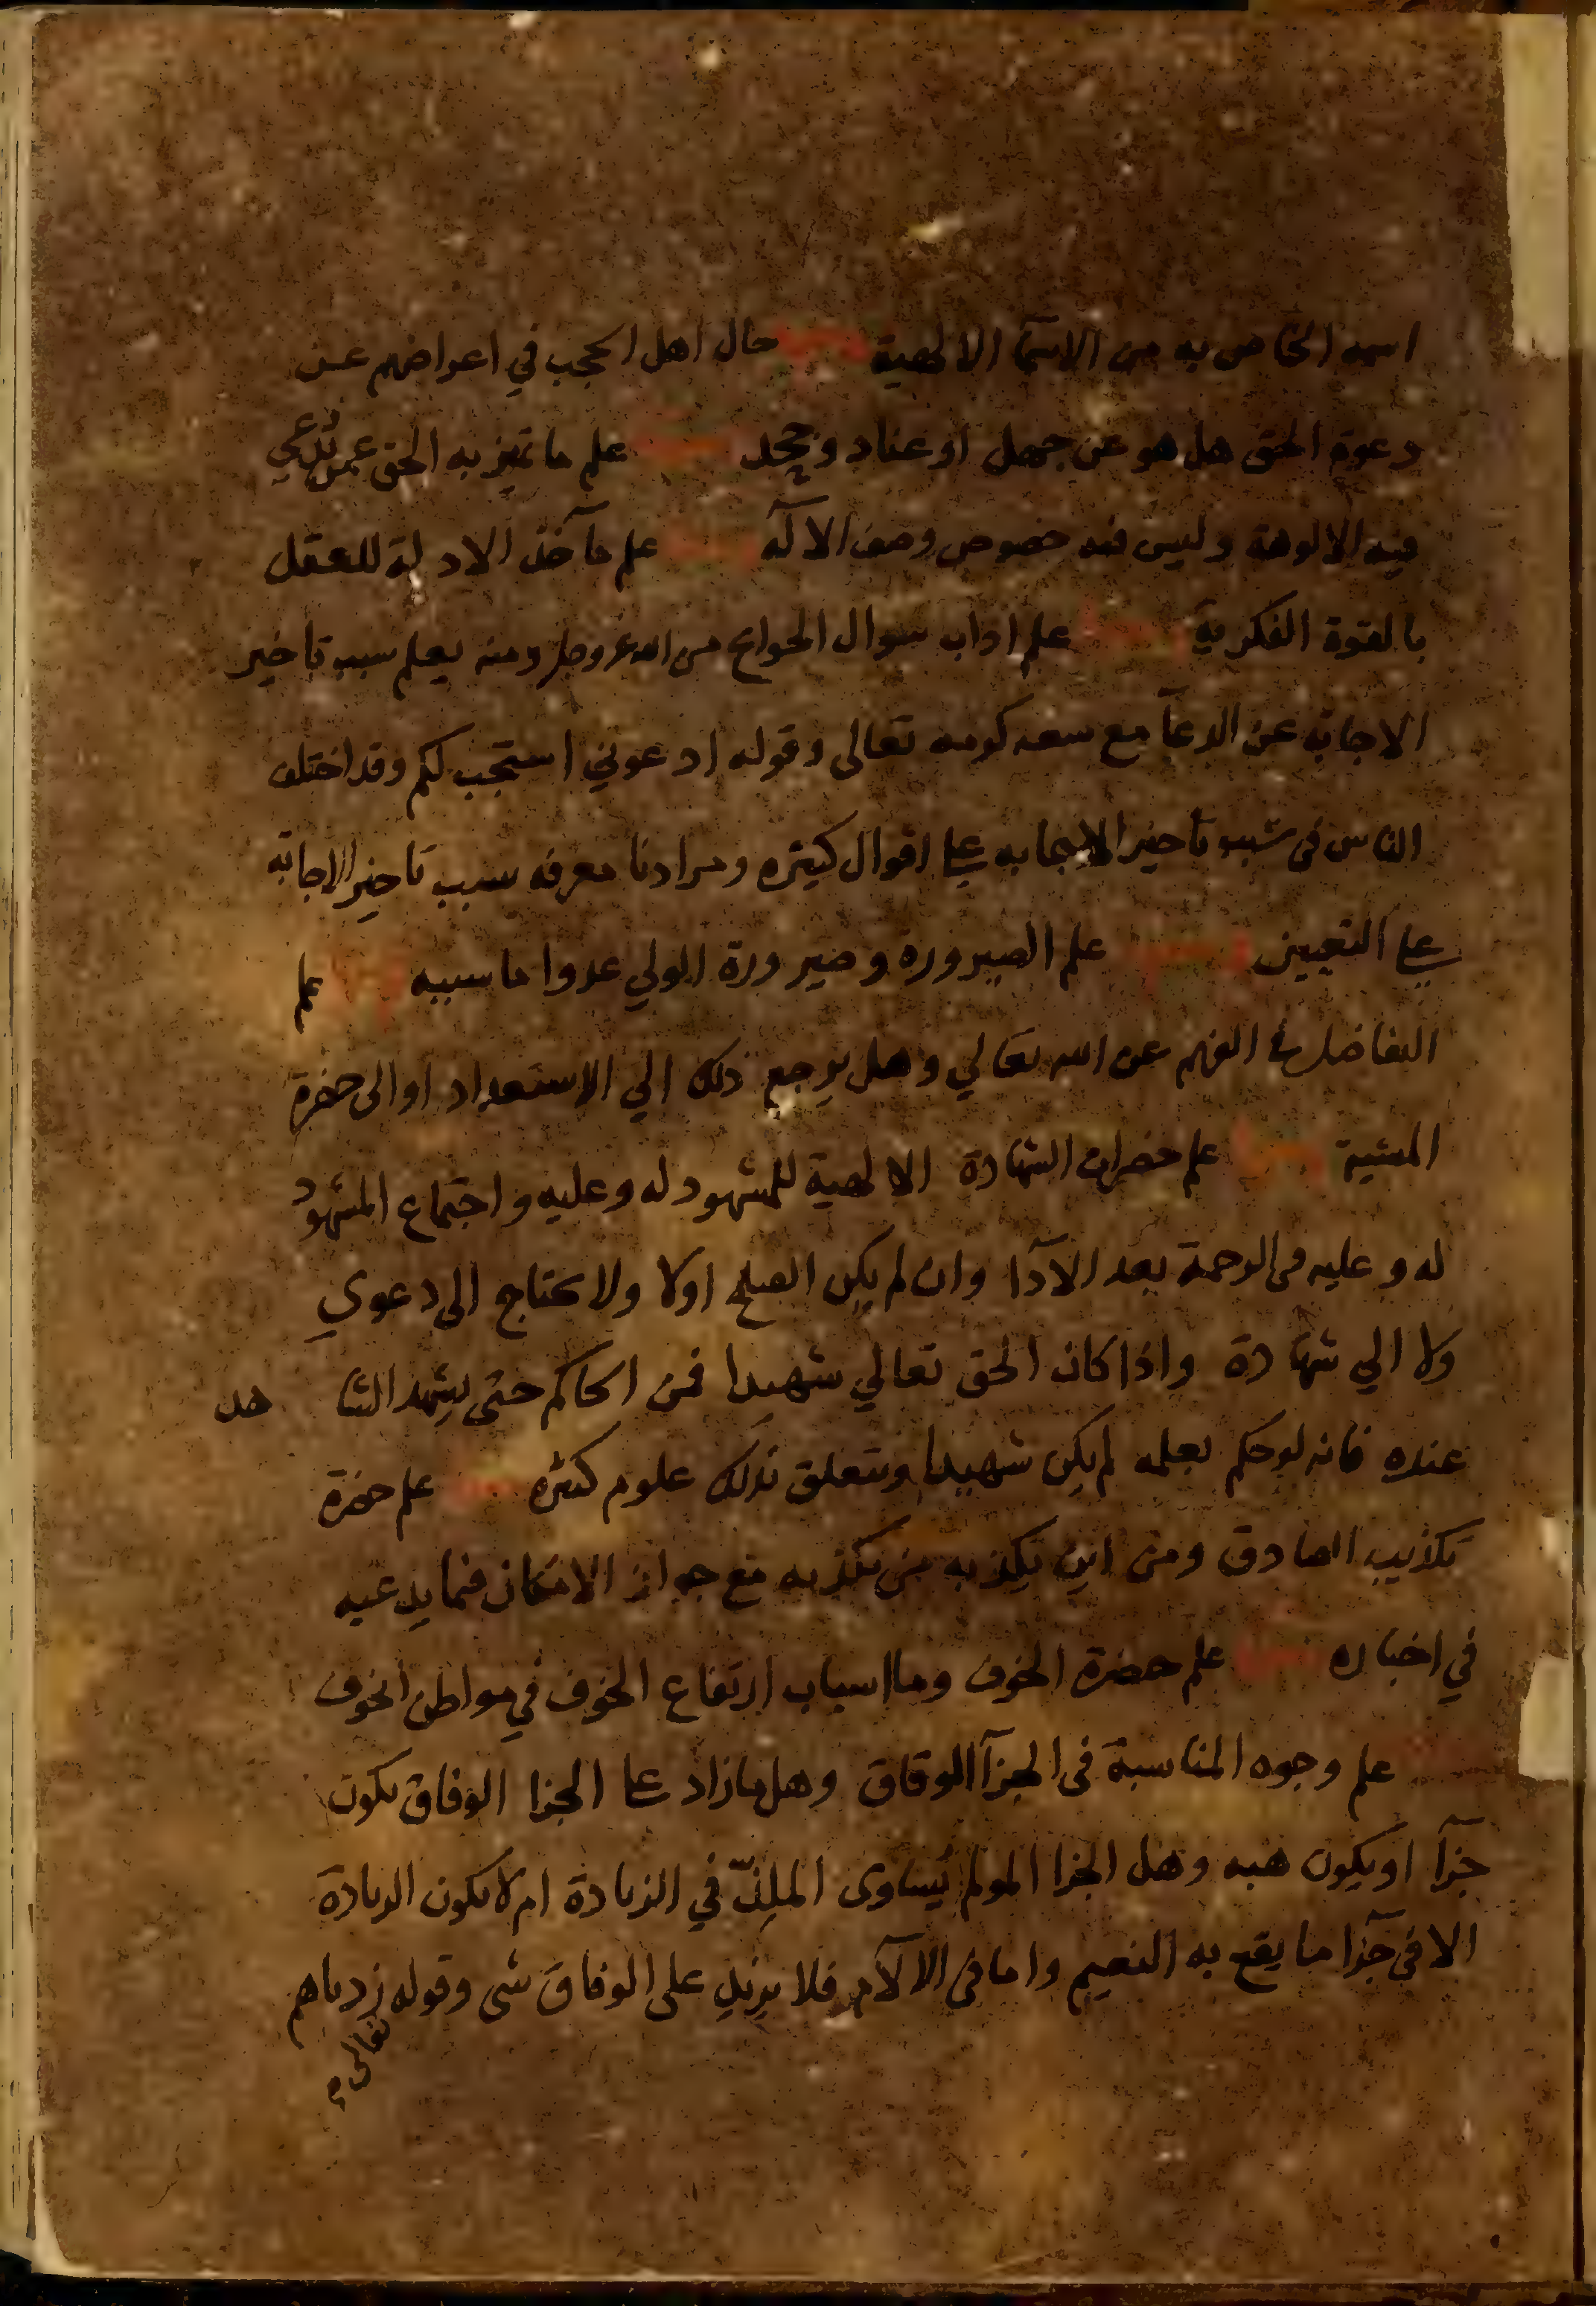 اسمه الخاص به من الاسمآ الالهية ومنها حال اهل الحجب في اعراضهم عن
دعوة الحق هل هو عن جهل او عناد وجحد ومنها علم ما تميز به الحق عمن تدعي
فيه الالوهة وليس فيه خصوص وصف الاله ومنها علم مآخذ الادلة للعقل
بالقوة الفكرية ومنها علم اداب سوال الحوايج من الله عز وجل ومنه يعلم سبب تاخير
الاجابة عن الدعآ مع سعه كرمه تعالى وقوله ادعوني استجب لكم وقد اختلف
الناس في سبب تاخير الاجابه على اقوال كثيره ومرادنا معرفه سبب تاخير الاجابة
على التعيين ومنها علم الصيروره وصيرورة الولي عدوا ما سببه ومنها علم
التفاضل في الفهم عن الله تعالي وهل يرجع ذلك الي الاستعداد او الى حضرة
المشية ومنها علم حضرات الشهادة الالهية للمشهود له وعليه واجتماع المشهود
له وعليه في الرحمة بعد الآدا وان لم يكن الصلح اولا ولا يحتاج الى دعوي
ولا الي شهادة واذا كان الحق تعالي شهيدا فمن الحاكم حتى يشهد الشاهد
عنده فانه لو حكم بعلمه لم يكن شهيدا ويتعلق بذلك علوم كثيره ومنها علم حضرة
تكذيب الصادق ومن اين يكذبه من يكذبه مع جواز الامكان فيما يدعيه
في اخباره ومنها علم حضرة الخوف وما اسباب ارتفاع الخوف في مواطن الخوف
ومنها علم وجوه المناسبة في الجزآ الوفاق وهل ما زاد على الجزا الوفاق يكون
جزآ او يكون هبه وهل الجزا المولم يساوى الملذّ في الزيادة ام لا يكون الزيادة
الا في جزآ ما يقع به النعيم واما في الالآم فلا يزيد على الوفاق شى وقوله زدناهم
تعالى